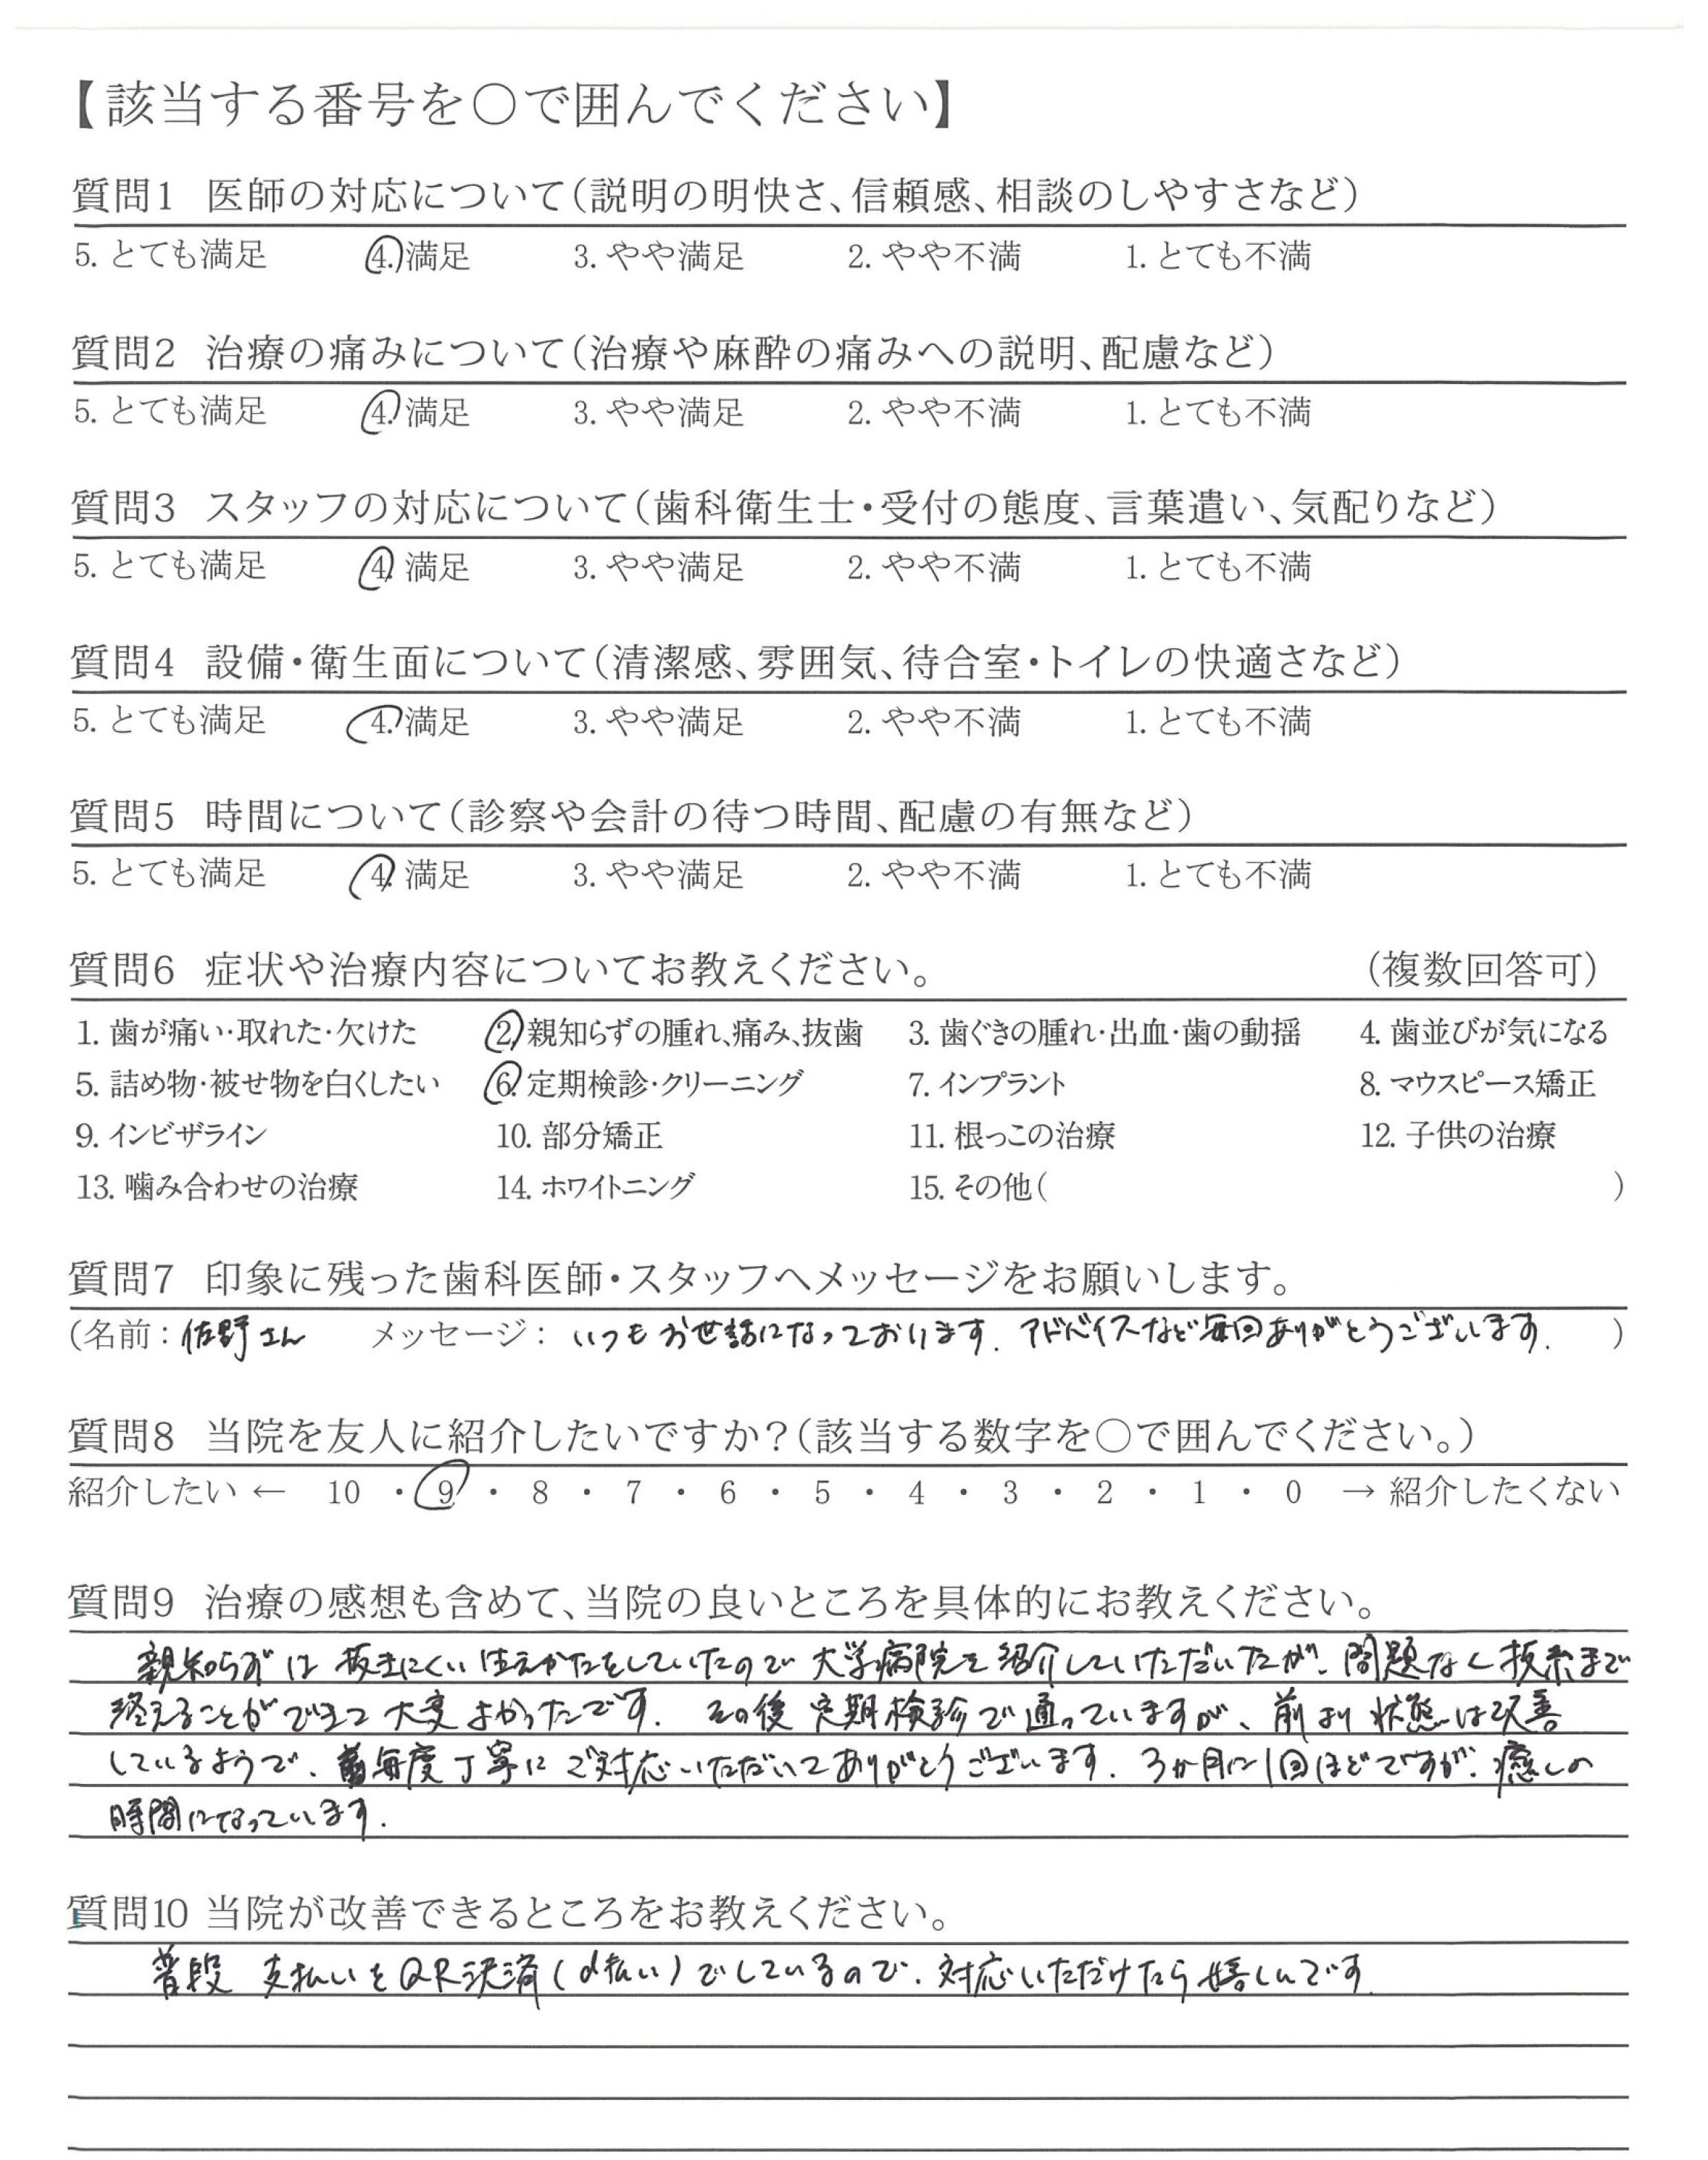 【該当する番号を○で囲んでください】
質問1 医師の対応について(説明の明快さ、信頼感、相談のしやすさなど)
5. とても満足 4. 満足 3. やや満足 2. やや不満 1. とても不満
質問2 治療の痛みについて(治療や麻酔の痛みへの説明、配慮など)
5. とても満足 4. 満足 3. やや満足 2. やや不満 1. とても不満
質問3 スタッフの対応について(歯科衛生士・受付の態度、言葉遣い、気配りなど)
5. とても満足 4. 満足 3. やや満足 2. やや不満 1. とても不満
質問4 設備・衛生面について(清潔感、雰囲気、待合室・トイレの快適さなど)
5. とても満足 4. 満足 3. やや満足 2. やや不満 1. とても不満
質問5 時間について(診察や会計の待つ時間、配慮の有無など)
5. とても満足 4. 満足 3. やや満足 2. やや不満 1. とても不満
質問6 症状や治療内容についてお教えください。 (複数回答可)
1. 歯が痛い・取れた・欠けた 2. 親知らずの腫れ、痛み、抜歯 3. 歯ぐきの腫れ・出血・歯の動揺 4. 歯並びが気になる
5. 詰め物・被せ物を白くしたい 6. 定期検診・クリーニング 7. インプラント 8. マウスピース矯正
9. インビザライン 10. 部分矯正 11. 根っこの治療 12. 子供の治療
13. 噛み合わせの治療 14. ホワイトニング 15. その他( )
質問7 印象に残った歯科医師・スタッフへメッセージをお願いします。
(名前：佐野さん メッセージ：いつもお世話になっております. アドバイスなど毎回ありがとうございます. )
質問8 当院を友人に紹介したいですか?(該当する数字を○で囲んでください。)
紹介したい ← 10 ・ 9 ・ 8 ・ 7 ・ 6 ・ 5 ・ 4 ・ 3 ・ 2 ・ 1 ・ 0 → 紹介したくない
質問9 治療の感想も含めて、当院の良いところを具体的にお教えください。
親知らずは 抜きにくい 生えかたをしていたので 大学病院を紹介していただいたが、問題なく抜糸まで
終えることができて 大変よかったです. その後 定期検診で通っていますが、前より 状態は改善
しているようで、毎度丁寧に ご対応いただいてありがとうございます. 3か月に1回ほどですが、癒しの
時間になっています.
質問10 当院が改善できるところをお教えください。
普段 支払いをQR決済(d払い)でしているので、対応いただけたら嬉しいです.